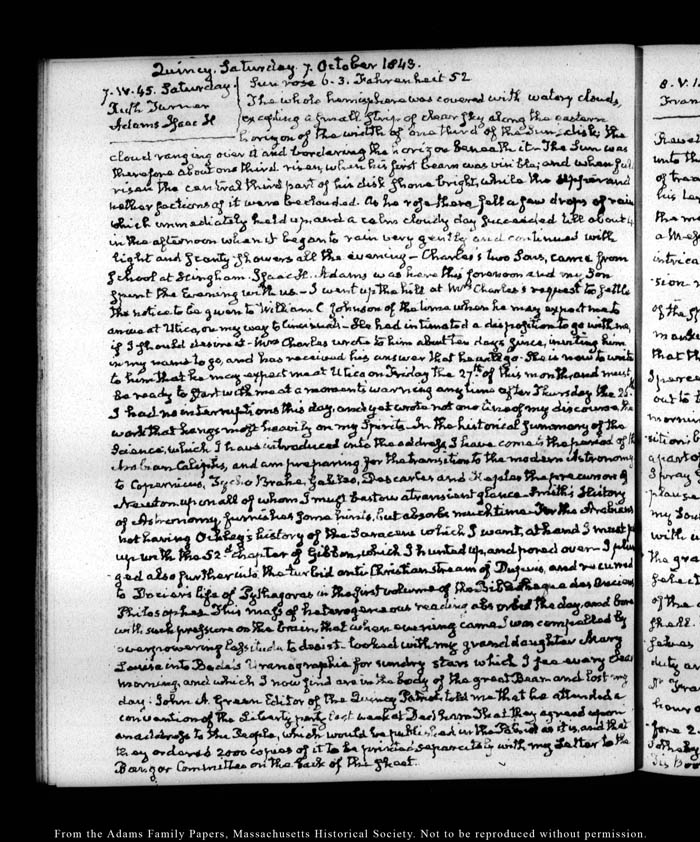 Quincy. Saturday 7. October 1843.
7. IV. 45. Saturday
Ruth Turner
Adams Isaac H
Sun rose 6-3. Fahrenheit 52
The whole hemisphere was covered with watery clouds,
excepting a small strip of clear sky along the eastern
horizon of the width of one third of the Sun's disk; the
cloud ranging over it and bordering the horizon beneath it. The Sun was
therefore about one third risen, when his first beam was visible; and when full
risen the central third part of his disk shone bright, while the upper and
nether sections of it were beclouded. As he rose there fell a few drops of rain
which immediately held up, and a calm cloudy day succeeded till about 4
in the afternoon when it began to rain very gently and continued with
light and scanty showers all the evening — Charles's two Sons, came from
School at Hingham. Isaac H. Adams was here this forenoon and my Son
spent the Evening with us — I went up the hill at Mrs Charles's request to settle
the notice to be given to William C Johnson of the time when he may expect me to
arrive at Utica, on my way to Cincinnati — He had intimated a disposition to go with me,
if I should desire it — Mrs Charles wrote to him about ten days since, inviting him
in my name to go, and has received his answer that he will go. She is now to write
to him that he may expect me at Utica on Friday the 27th of this month and must
be ready to start with me at a moment's warning any time after Thursday the 26th
I had no interruptions this day, and yet wrote not one line of my discourse, the
work that hangs most heavily on my Spirits. In the historical summary of the
Science, which I have introduced into the address, I have come to the period of the
Arabian Caliphs, and am preparing for the transition to the modern Astronomy
to Copernicus, Tycho Brahe, Galileo, Descartes and Kepler the precursor of
Newton, upon all of whom I must bestow a transient glance. Smith's History
of Astronomy furnishes some hints, but absorbs much time. For the Arabians
not having Ockley's history of the Saracens which I want, at hand I must put
up with the 52d chapter of Gibbon, which I hunted up, and pored over. I plun
ged also further into the turbid anti Christian stream of Dupuis, and recurred
to Dacier's life of Pythagoras in the first volume of the Bibliotheque des Anciens
Philosophes. This mass of heterogeneous reading absorbed the day, and bore
with such pressure on the brain, that when evening came I was compelled by
overpowering lassitude to desist. looked with my grand daughter Mary
Louisa into Bode's Uranographia for sundry stars which I see every clear
morning, and which I now find are in the body of the great Bear and lost my
day. John A. Green Editor of the Quincy Patriot told me that he attended a
convention of the Liberty party last week at Dedham That they agreed upon
an address to the People, which would be published in the Patriot as it is, and that
they ordered 2000 copies of it to be printed separately with my Letter to the
Bangor Committee on the back of the sheet.
8. V. 1
From the Adams Family Papers, Massachusetts Historical Society. Not to be reproduced without permission.